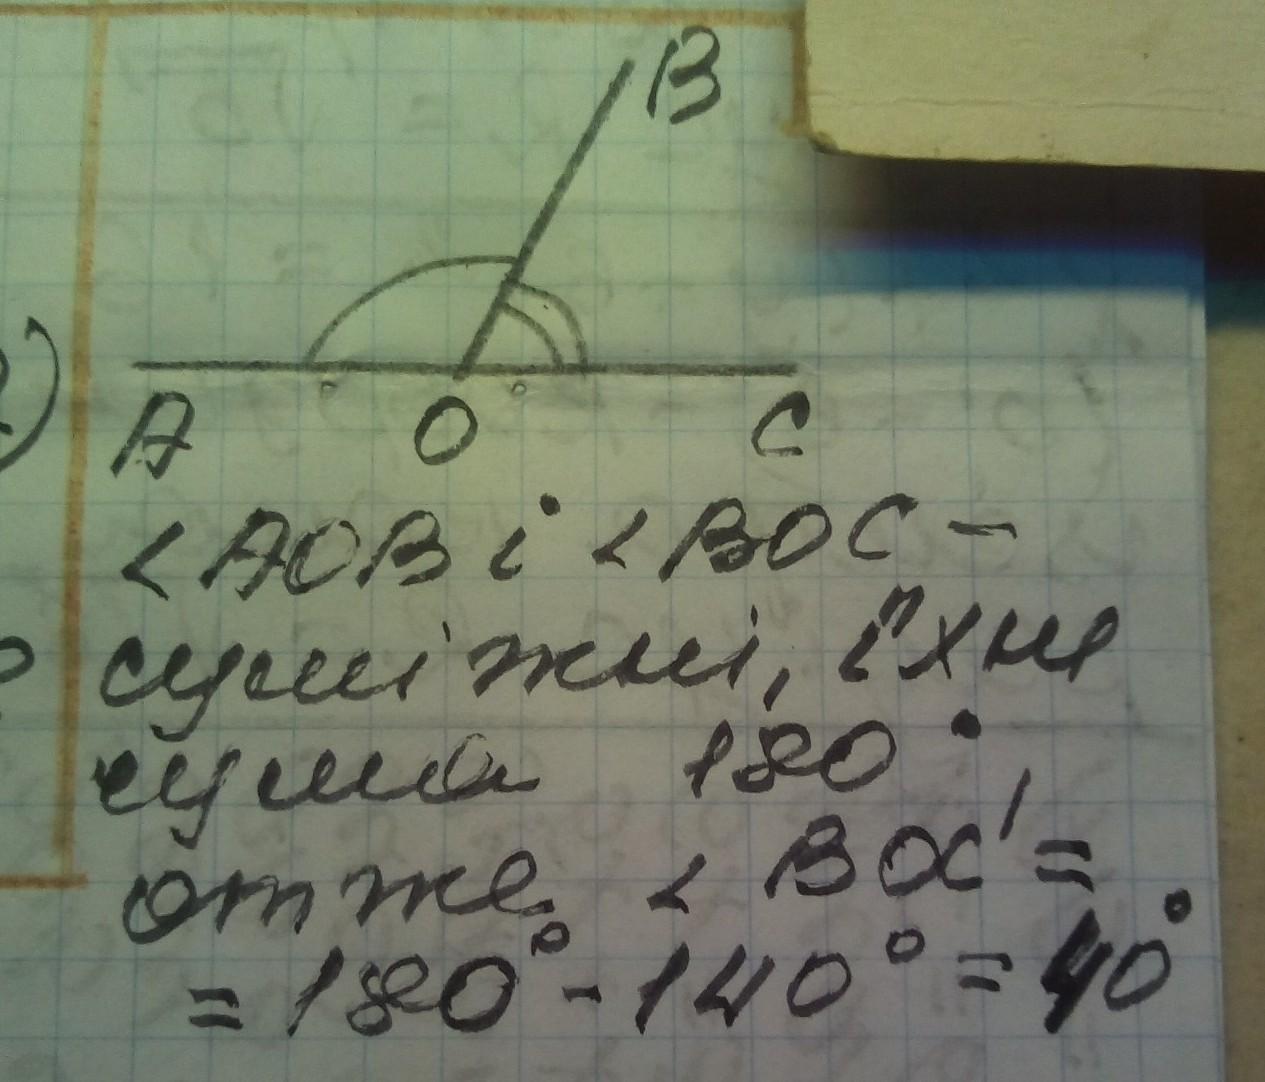 B
A O C
<AOB i <BOC -
суміжні, їхня
сума 180°,
отже <BOC =
= 180° - 140° = 40°